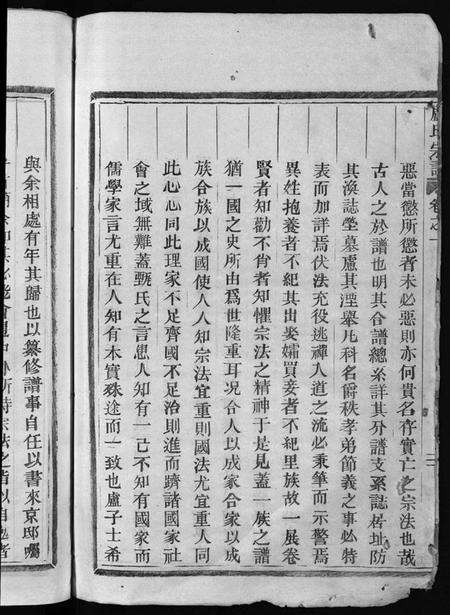 盧氏宗譜 卷之一
惡當懲所懲者未必惡則亦何貴名存實亡之宗法也哉
古人之於譜也明其合譜總系詳其分譜支系誌居址防
其渙誌塋墓慮其湮舉凡科名爵秩孝弟節義之事必特
表而加詳焉伏法充役逃禪人道之流必秉筆而示警焉
異姓抱養者不紀其出娶孀買妾者不紀里族故一展卷
賢者知勸不肖者知懼宗法之精神于是見蓋一族之譜
猶一國之史所由爲世隆重耳况合人以成家合家以成
族合族以成國使人人知宗法宜重則國法尤宜重人同
此心心同此理家不足齊國不足治則進而躋諸國家社
會之域無難蓋甄氏之言患人知有一己不知有國家而
儒學家言尤重在人知有本實殊途而一致也盧子士希
與余相處有年其歸也以纂修譜事自任以書來京邸囑